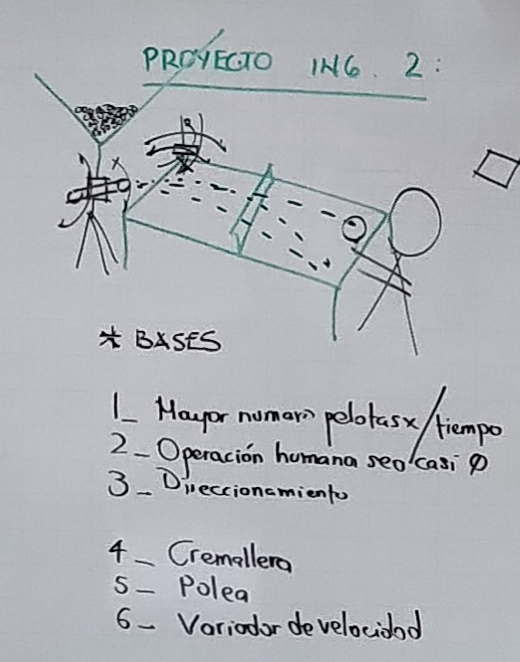 PROYECTO ING. 2:
* BASES
1_ Mayor numero pelotas x/tiempo
2_ Operación humana sea casi Ø
3_ Direccionamiento
4_ Cremallera
5_ Polea
6_ Variador de velocidad